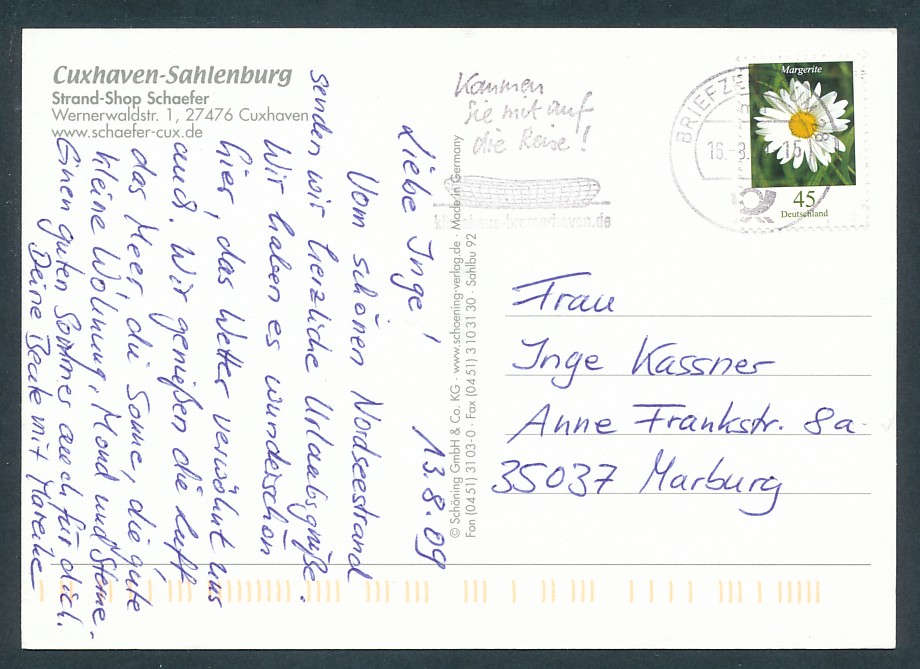 Cuxhaven-Sahlenburg
Strand-Shop Schaefer
Wernerwaldstr. 1, 27476 Cuxhaven
www.schaefer-cux.de
Liebe Inge! 13.8.09
Vom schönen Nordseestrand
senden wir herzliche Urlaubsgrüße.
Wir haben es wunderschön
hier, das Wetter verwöhnt uns
auch. Wir genießen die Luft
das Meer die Sonne, die gute
kleine Wohnung, Mond und Sterne.
Einen guten Sommer auch für dich.
Deine Beate mit Mareike
© Schöning GmbH & Co. KG · www.schoening-verlag.de · Made in Germany
Fon (04 51) 31 03-0 · Fax (04 51) 310 31 30 · Sahlbu 92
Kommen
Sie mit auf
die Reise!
BRIEFZE
Margerite
45
Deutschland
Frau
Inge Kassner
Anne Frankstr. 8a
35037 Marburg